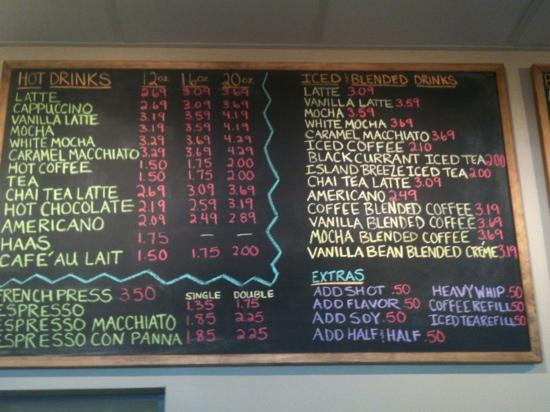 HOT DRINKS 12oz 16oz 20oz
LATTE 2.69 3.09 3.69
CAPPUCCINO 2.69 3.09 3.69
VANILLA LATTE 3.19 3.59 4.19
MOCHA 3.19 3.59 4.19
WHITE MOCHA 3.29 3.69 4.29
CARAMEL MACCHIATO 3.29 3.69 4.29
HOT COFFEE 1.50 1.75 2.00
TEA 1.50 1.75 2.00
CHAI TEA LATTE 2.69 3.09 3.69
HOT CHOCOLATE 2.19 2.59 3.19
AMERICANO 2.09 2.49 2.89
HAAS 1.75 —
CAFE´ AU LAIT 1.50 1.75 2.00
FRENCH PRESS 3.50 SINGLE DOUBLE
ESPRESSO 1.35 1.75
ESPRESSO MACCHIATO 1.85 2.25
ESPRESSO CON PANNA 1.85 2.25
ICED & BLENDED DRINKS
LATTE 3.09
VANILLA LATTE 3.59
MOCHA 3.59
WHITE MOCHA 3.69
CARAMEL MACCHIATO 3.69
ICED COFFEE 2.10
BLACK CURRANT ICED TEA 2.00
ISLAND BREEZE ICED TEA 2.00
CHAI TEA LATTE 3.09
AMERICANO 2.49
COFFEE BLENDED COFFEE 3.19
VANILLA BLENDED COFFEE 3.69
MOCHA BLENDED COFFEE 3.69
VANILLA BEAN BLENDED CRÈME 3.19
EXTRAS
ADD SHOT .50 HEAVY WHIP .50
ADD FLAVOR .50 COFFEE REFILL .50
ADD SOY .50 ICED TEA REFILL .50
ADD HALF & HALF .50